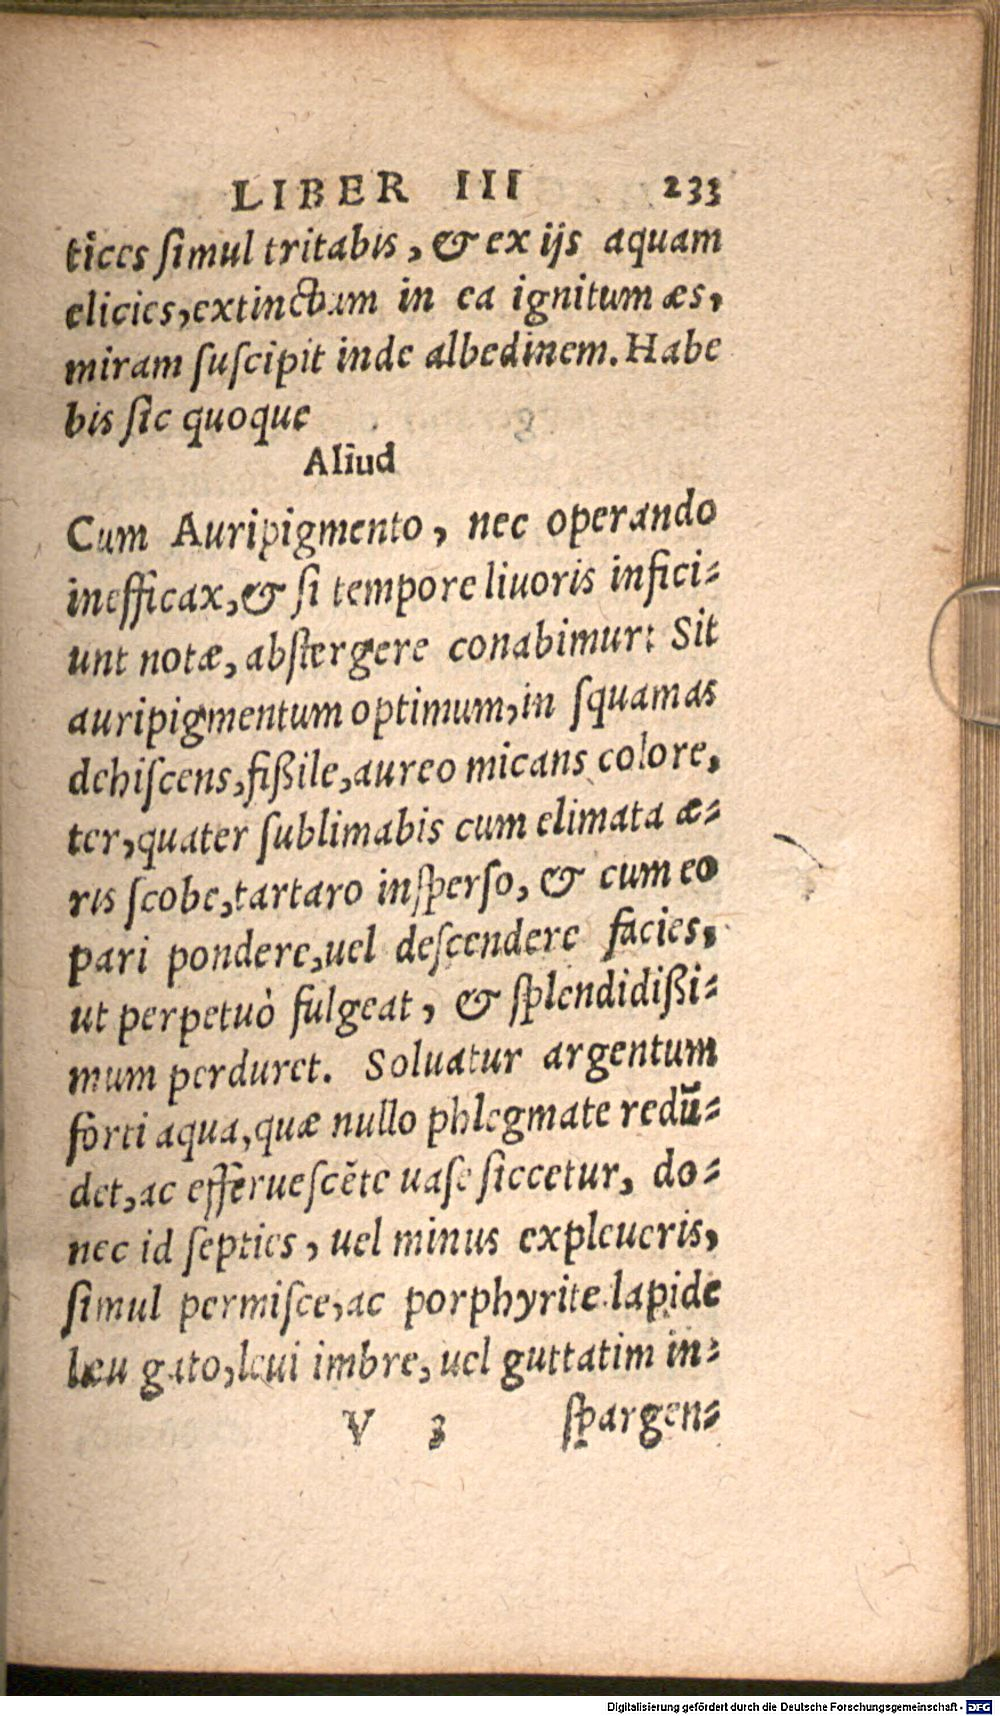 LIBER III 233
tices ſimul tritabis, & ex ijs aquam
elicies, extinctum in ea ignitum æs,
miram ſuſcipit inde albedinem. Habe
bis ſic quoque
Aliud
Cum Auripigmento, nec operando
inefficax, & ſi tempore liuoris infici-
unt notæ, abſtergere conabimur: Sit
auripigmentum optimum, in ſquamas
dehiſcens, fißile, aureo micans colore,
ter, quater ſublimabis cum elimata æ-
ris ſcobe, tartaro inſperſo, & cum eo
pari pondere, uel deſcendere facies,
ut perpetuò fulgeat, & ſplendidißi-
mum perduret. Soluatur argentum
forti aqua, quæ nullo phlegmate redū-
det, ac efferueſcẽte uaſe ſiccetur, do-
nec id ſepties, uel minus expleueris,
ſimul permiſce, ac porphyrite lapide
læu gato, leui imbre, uel guttatim in-
V 3 ſpargen-
Digitalisierung gefördert durch die Deutsche Forschungsgemeinschaft - DFG